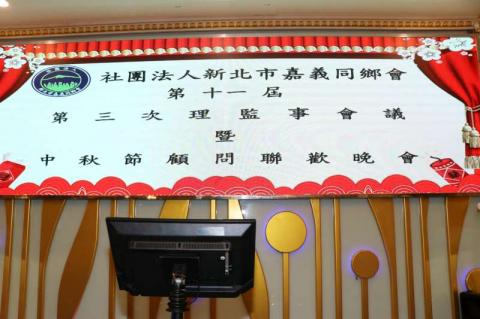 社團法人新北市嘉義同鄉會
第十一屆
第三次理監事會議
暨
中秋節顧問聯歡晚會